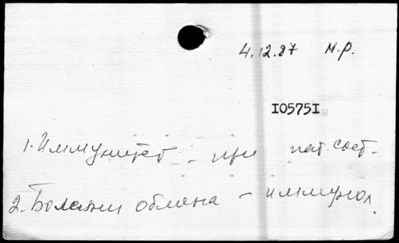 4.12.87 М.р.
105751
1. Иммунитет - при пат. сост.
2. Болезни обмена - иммунол.